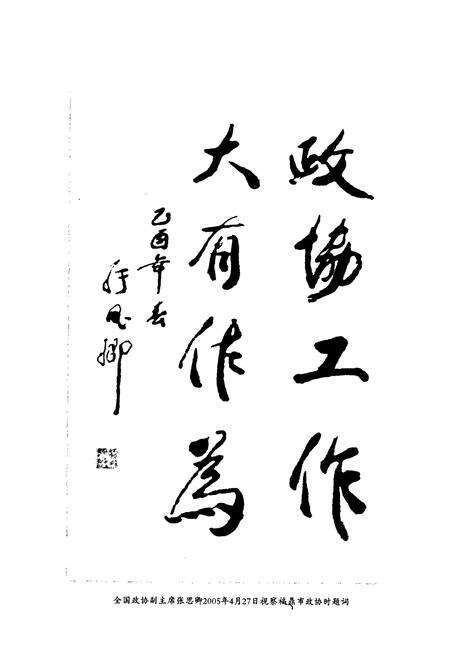 政协工作
大有作為
乙酉年春
张思卿
全国政协副主席张思卿2005年4月27日视察福鼎市政协时题词